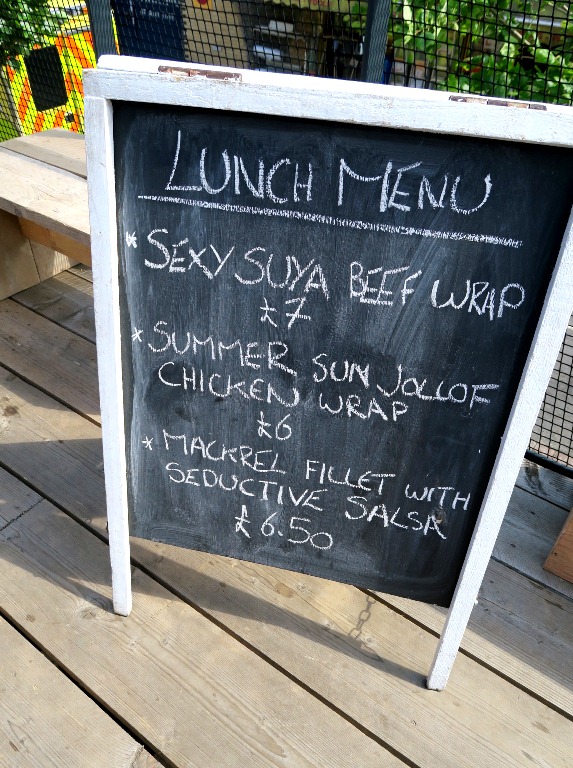 LUNCH MENU
* SEXY SUYA BEEF WRAP
£7
* SUMMER SUN JOLLOF
CHICKEN WRAP
£6
* MACKREL FILLET WITH
SEDUCTIVE SALSA
£6.50